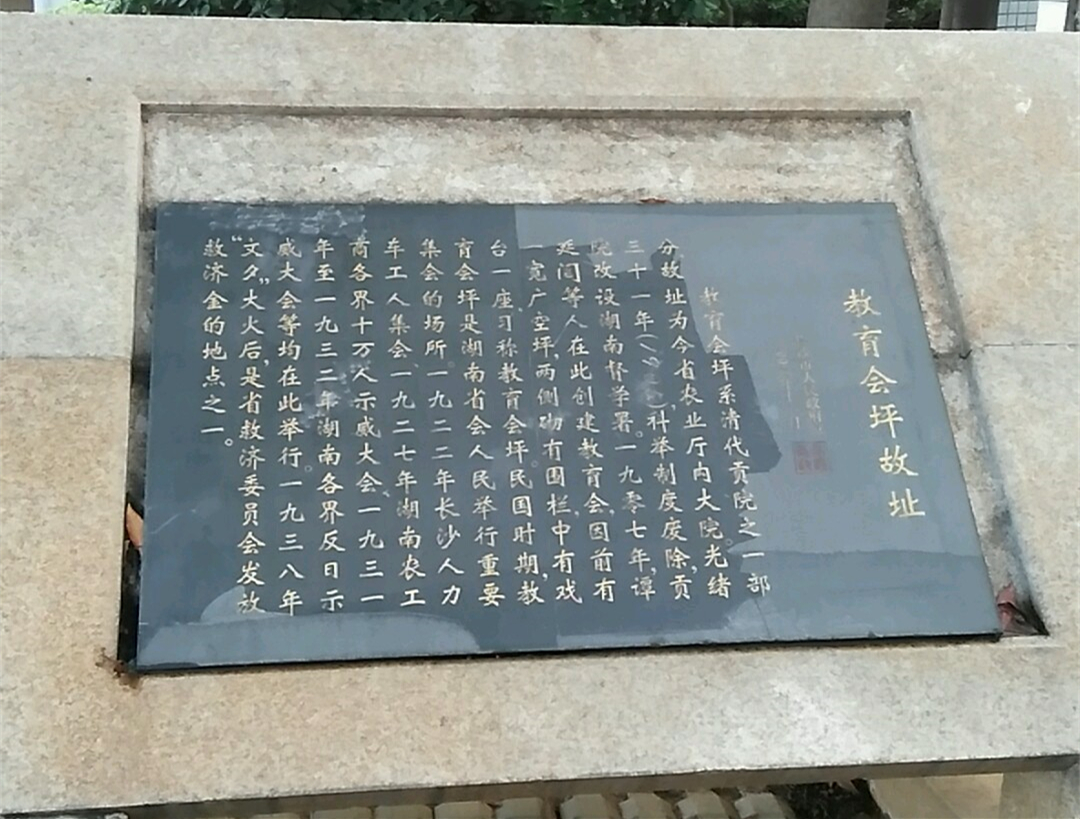 教育会坪故址
教育会坪系清代贡院之一部
分,故址为今省农业厅内大院。光绪
三十一年(一九 ),科举制度废除,贡
院改设湖南督学署。一九零七年,谭
延闿等人在此创建教育会,因前有
一宽广空坪,两侧砌有围栏,中有戏
台一座,习称教育会坪。民国时期,教
育会坪是湖南省会人民举行重要
集会的场所。一九二二年长沙人力
车工人集会、一九二七年湖南农工
商各界十万人示威大会、一九三一
年至一九三二年湖南各界反日示
威大会等均在此举行。一九三八年
“文夕”大火后,是省救济委员会发放
救济金的地点之一。